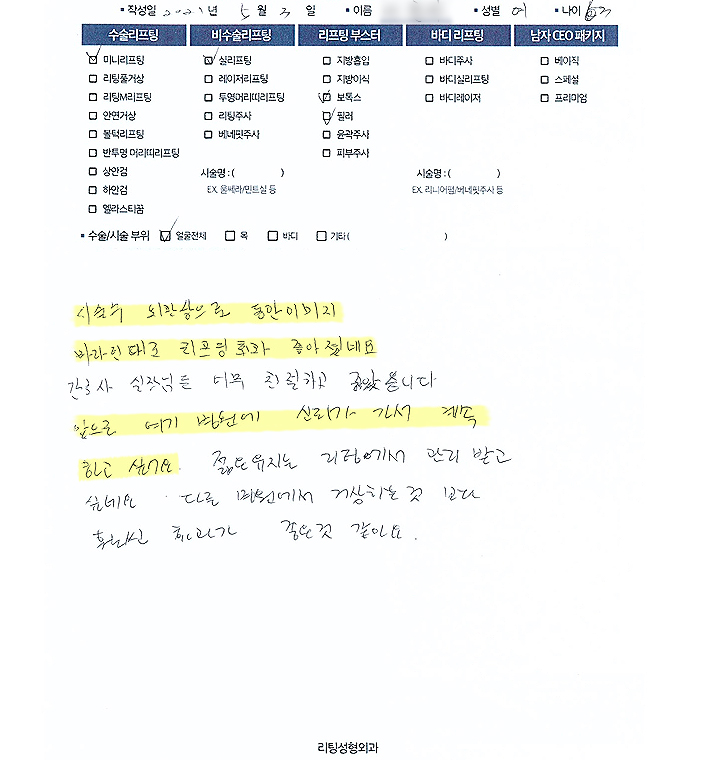 • 작성일 2021년 5월 3일 • 이름 • 성별 여 • 나이 63
수술리프팅 비수술리프팅 리프팅 부스터 바디 리프팅 남자 CEO 패키지
미니리프팅 실리프팅 지방흡입 바디주사 베이직
리팅풀거상 레이저리프팅 지방이식 바디실리프팅 스페셜
리팅M리프팅 투명머리띠리프팅 보톡스 바디레이저 프리미엄
안면거상 리팅주사 필러
볼턱리프팅 베네핏주사 윤곽주사
반투명 머리띠리프팅 피부주사
상안검 시술명 : ( ) 시술명 : ( )
하안검 EX. 울쎄라/민트실 등 EX. 리니어펌/베네핏주사 등
엘라스티꿈
• 수술/시술 부위 얼굴전체 목 바디 기타 ( )
시술후 동안이미지
바라던대로 리프팅 효과 좋아졌네요
간호사 실장님들 너무 친절하고 좋았읍니다
앞으로 여기 병원에 신뢰가 가서 계속
하고 싶어요. 젊음유지는 리팅에서 관리 받고
싶네요. 다른 병원에서 거상하는것 보다
훨씬 효과가 좋은것 같아요.
리팅성형외과